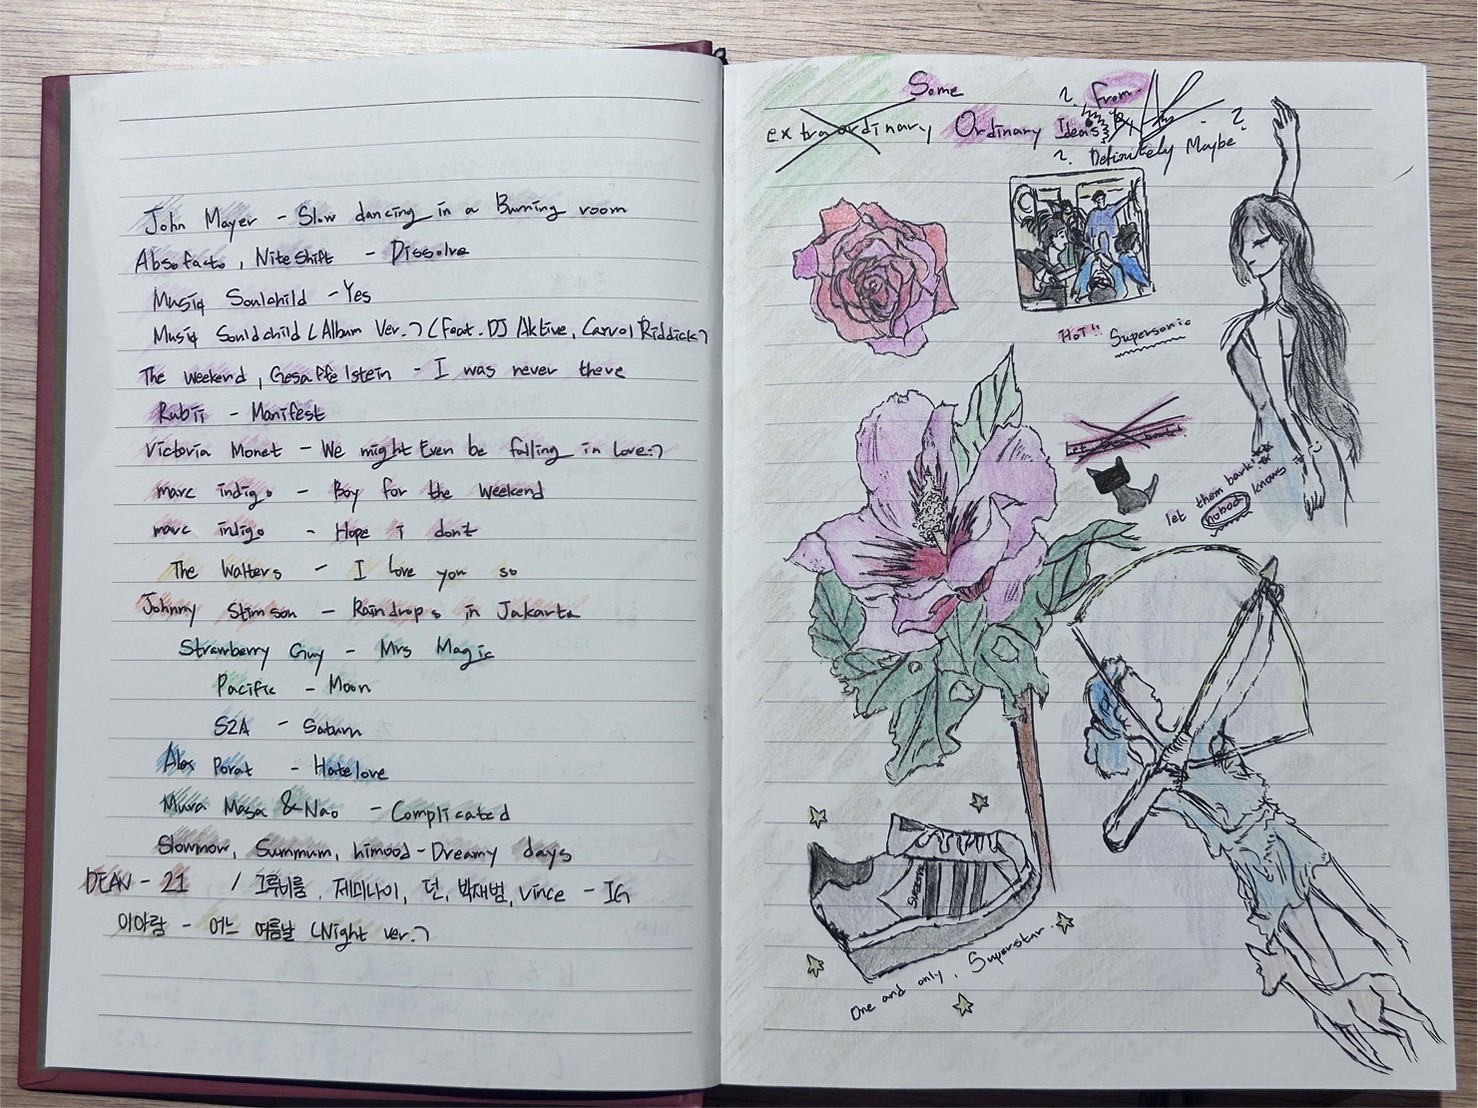 John Mayer - Slow dancing in a Burning room
Absofacto, Niteshift - Dissolve
Musiq Soulchild - Yes
Musiq Souldchild (Album Ver.) (feat. DJ Aktive, Carvol Riddick)
The weekend, Gesaffelstein - I was never there
Rubii - Manifest
Victoria Monet - We might Even be falling in love:)
marc indigo - Boy for the weekend
marc indigo - Hope i don't
The Walters - I love you so
Johnny Stimson - Raindrops in Jakarta
Strawberry Guy - Mrs Magic
Pacific - Moon
S2A - Saturn
Alex Porat - Hatelove
Mura Masa & Nao - Complicated
Slowmow, Summum, himood - Dreamy days
DEAN - 21 / 그루비룸, 제미나이, 던, 박재범, Vince - IG
이아람 - 어느 여름날 (Night ver.)
Some
extraordinary Ordinary Ideas By
?. From.
?. Definitely Maybe ?
HOT!! Supersonic
let them bark
nobody knows
One and only, Superstar.